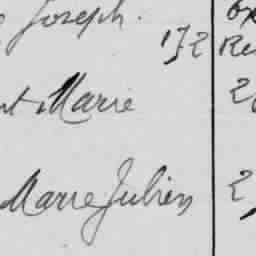 Joseph.
172 Re
nt Marie 2
Marie Julien 2